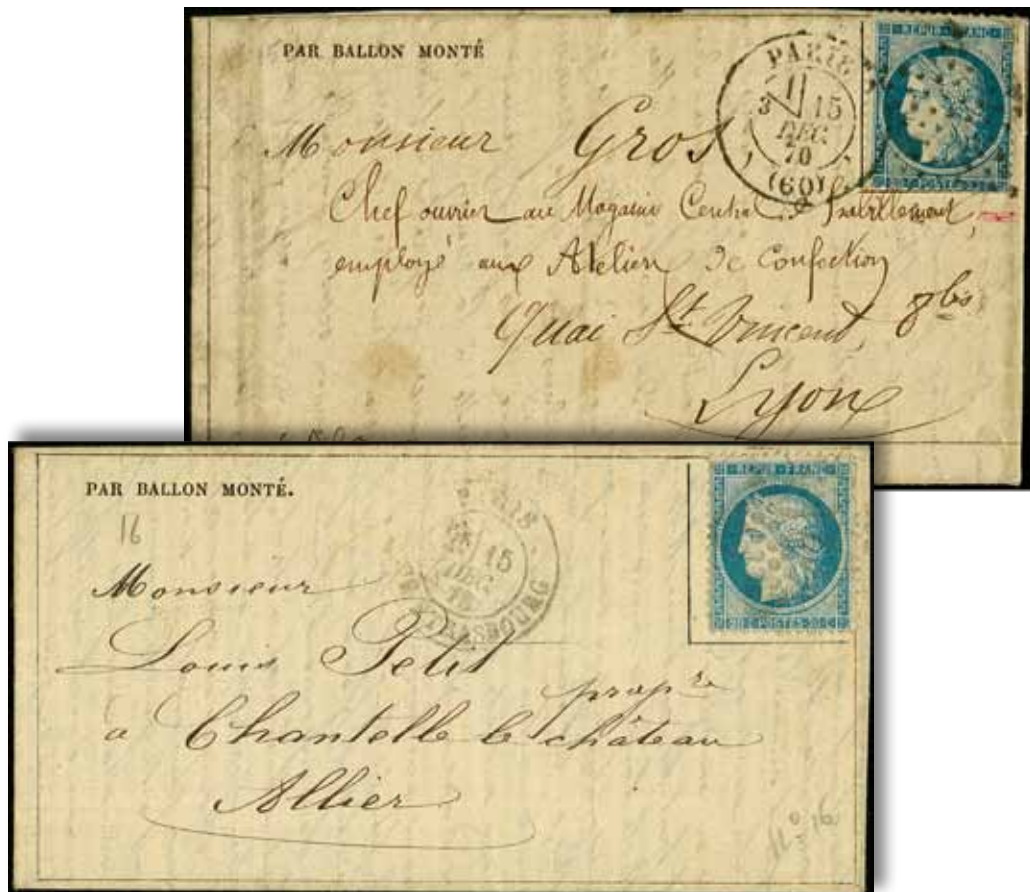 PAR BALLON MONTÉ
REPUB. FRANC.
PARIS
3 15
DEC.
70
(60)
Monsieur Gros,
Chef ouvrier au Magasin Central d'habillement,
employé aux Atelier de Confection
Quai St. Vincent, 8 bis
Lyon
PAR BALLON MONTÉ.
16
REPUB. FRANC.
15
DEC.
STRASBOURG
20 C. POSTES 20 C.
Monsieur
Louis Petit
propre
à Chantelle le château
Allier